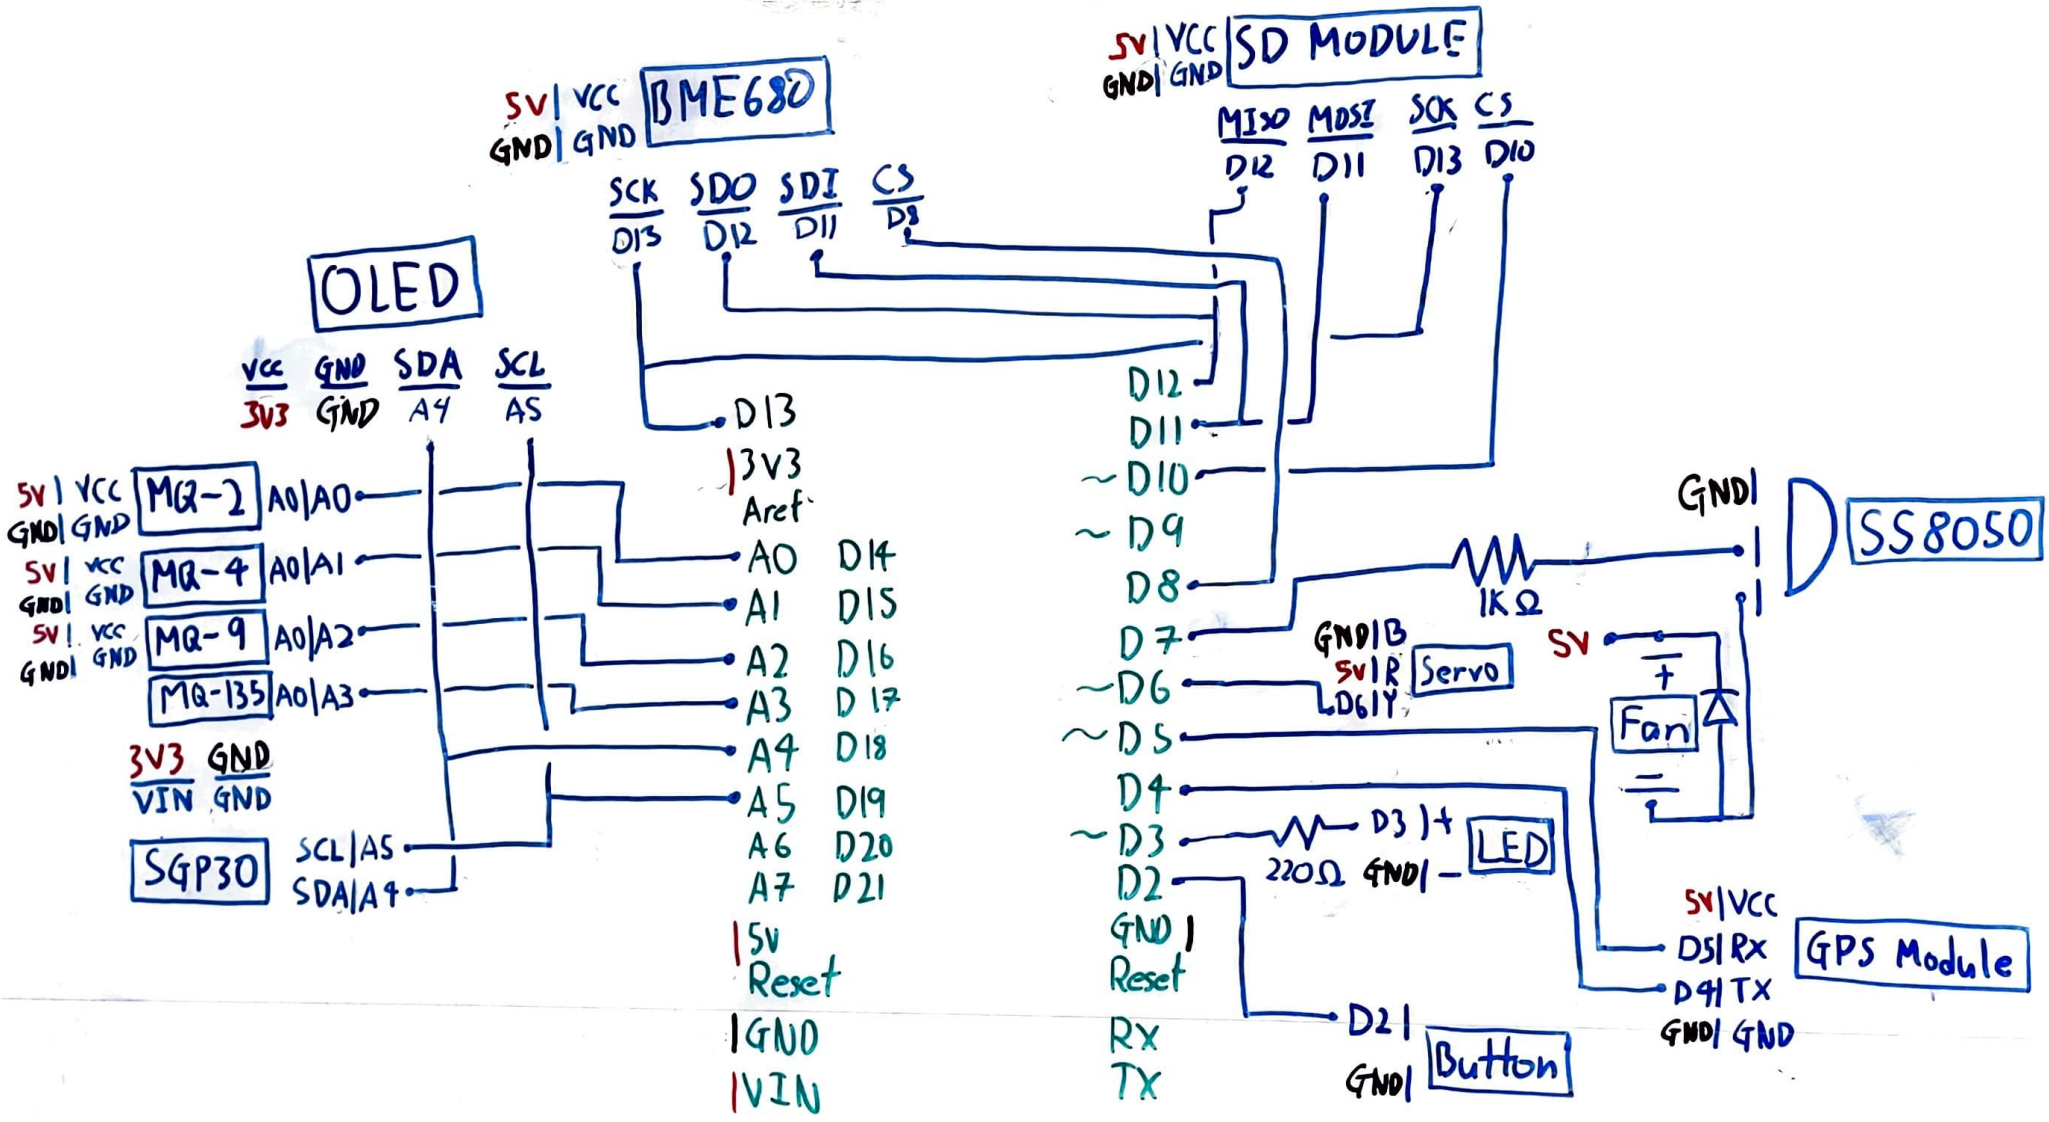 5V|VCC SD MODULE
GND|GND
MISO MOSI SCK CS
D12 D11 D13 D10
5V|VCC BME680
GND|GND
SCK SDO SDI CS
D13 D12 D11 D8
OLED
VCC GND SDA SCL
3V3 GND A4 A5
5V|VCC MQ-2 A0|A0
GND|GND
5V|VCC MQ-4 A0|A1
GND|GND
5V|VCC MQ-9 A0|A2
GND|GND
MQ-135 A0|A3
3V3 GND
VIN GND
SGP30 SCL|A5
SDA|A4
D13
|3V3
Aref
A0 D14
A1 D15
A2 D16
A3 D17
A4 D18
A5 D19
A6 D20
A7 D21
|5V
Reset
|GND
|VIN
D12
D11
~D10
~D9
D8
D7
~D6
~D5
D4
~D3
D2
GND|
Reset
RX
TX
GND|
SS8050
1KΩ
GND|B
5V|R Servo
D6|Y
5V
+
Fan
D3|+ LED
220Ω GND|-
5V|VCC
D5|Rx GPS Module
D4|TX
GND|GND
D2|
GND| Button